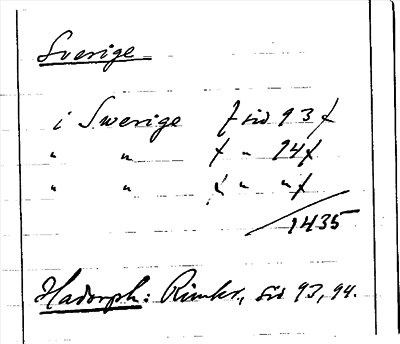 Sverige
i Swerige f sid 93 f
" " f " 94 f
" " f " " f
1435
Hadorph: Rimkr., sid 93, 94.